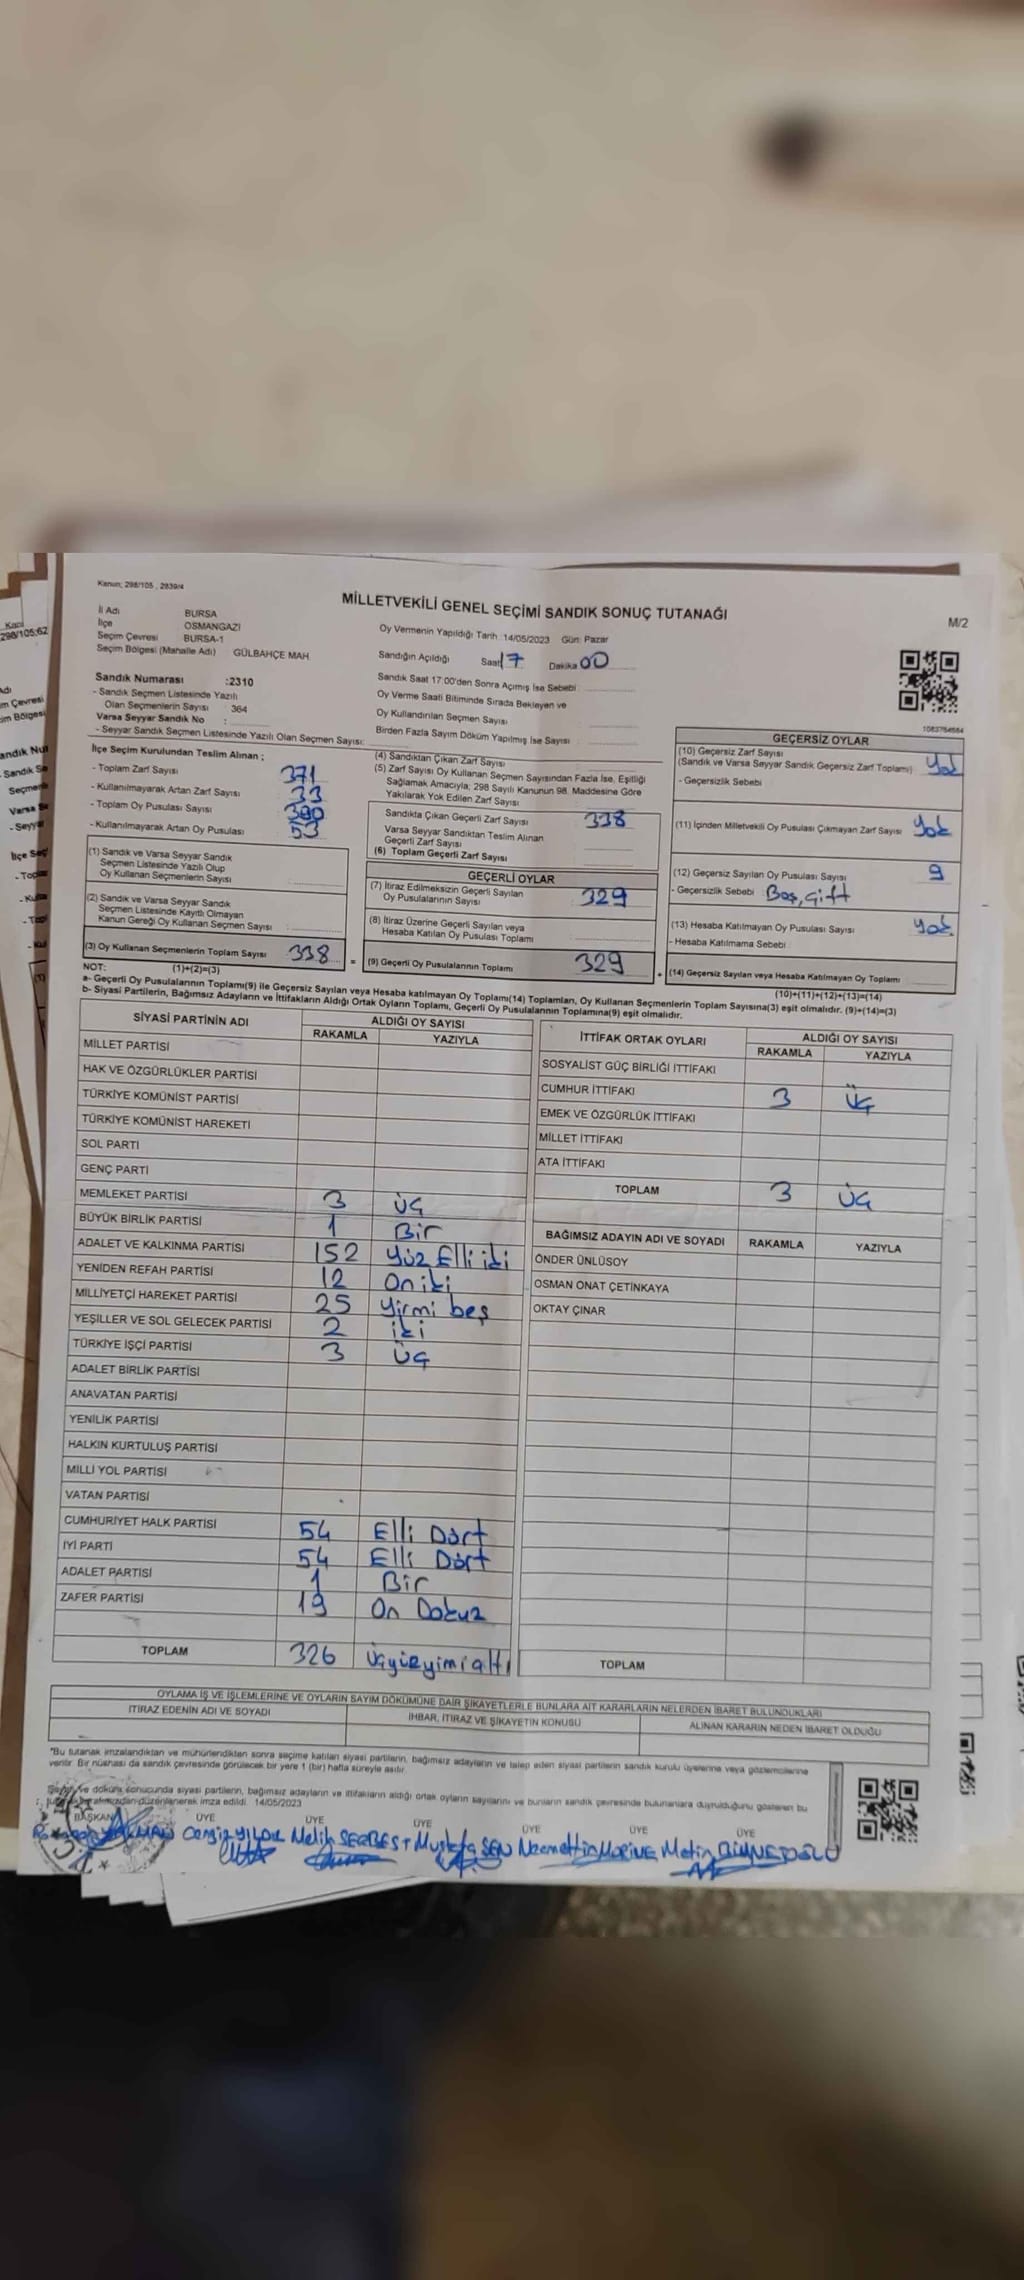 Kanun; 298/105 , 2839/4
MİLLETVEKİLİ GENEL SEÇİMİ SANDIK SONUÇ TUTANAĞI
M/2
İl Adı BURSA
İlçe OSMANGAZİ
Seçim Çevresi BURSA-1
Seçim Bölgesi (Mahalle Adı) GÜLBAHÇE MAH.
Oy Vermenin Yapıldığı Tarih: 14/05/2023 Gün: Pazar
Sandığın Açıldığı Saat 17 Dakika 00
Sandık Saat 17:00'den Sonra Açılmış İse Sebebi
Oy Verme Saati Bitiminde Sırada Bekleyen ve
Oy Kullandırılan Seçmen Sayısı
Birden Fazla Sayım Döküm Yapılmış İse Sayısı :
Sandık Numarası :2310
- Sandık Seçmen Listesinde Yazılı
Olan Seçmenlerin Sayısı : 364
Varsa Seyyar Sandık No :
- Seyyar Sandık Seçmen Listesinde Yazılı Olan Seçmen Sayısı:
İlçe Seçim Kurulundan Teslim Alınan ;
- Toplam Zarf Sayısı 371
- Kullanılmayarak Artan Zarf Sayısı 33
- Toplam Oy Pusulası Sayısı
- Kullanılmayarak Artan Oy Pusulası 53
(1) Sandık ve Varsa Seyyar Sandık
Seçmen Listesinde Yazılı Olup
Oy Kullanan Seçmenlerin Sayısı
(2) Sandık ve Varsa Seyyar Sandık
Seçmen Listesinde Kayıtlı Olmayan
Kanun Gereği Oy Kullanan Seçmen Sayısı
(3) Oy Kullanan Seçmenlerin Toplam Sayısı 338 =
(1)+(2)=(3)
(4) Sandıktan Çıkan Zarf Sayısı
(5) Zarf Sayısı Oy Kullanan Seçmen Sayısından Fazla İse, Eşitliği
Sağlamak Amacıyla; 298 Sayılı Kanunun 98. Maddesine Göre
Yakılarak Yok Edilen Zarf Sayısı
Sandıkta Çıkan Geçerli Zarf Sayısı 338
Varsa Seyyar Sandıktan Teslim Alınan
Geçerli Zarf Sayısı
(6) Toplam Geçerli Zarf Sayısı
GEÇERLİ OYLAR
(7) İtiraz Edilmeksizin Geçerli Sayılan
Oy Pusulalarının Sayısı 329
(8) İtiraz Üzerine Geçerli Sayılan veya
Hesaba Katılan Oy Pusulası Toplamı
(9) Geçerli Oy Pusulalarının Toplamı 329 +
1083784684
GEÇERSİZ OYLAR
(10) Geçersiz Zarf Sayısı
(Sandık ve Varsa Seyyar Sandık Geçersiz Zarf Toplamı) Yok
- Geçersizlik Sebebi
(11) İçinden Milletvekili Oy Pusulası Çıkmayan Zarf Sayısı Yok
(12) Geçersiz Sayılan Oy Pusulası Sayısı 9
- Geçersizlik Sebebi Boş, Çift
(13) Hesaba Katılmayan Oy Pusulası Sayısı Yok
- Hesaba Katılmama Sebebi
(14) Geçersiz Sayılan veya Hesaba Katılmayan Oy Toplamı
(10)+(11)+(12)+(13)=(14)
NOT:
a- Geçerli Oy Pusulaları Toplamı(9) ile Geçersiz Sayılan veya Hesaba katılmayan Oy Toplamı(14) Toplamları, Oy Kullanan Seçmenlerin Toplam Sayısına(3) eşit olmalıdır. (9)+(14)=(3)
b- Siyasi Partilerin, Bağımsız Adayların ve İttifakların Aldığı Ortak Oyların Toplamı, Geçerli Oy Pusulalarının Toplamına(9) eşit olmalıdır.
SİYASİ PARTİNİN ADI ALDIĞI OY SAYISI
RAKAMLA YAZIYLA
MİLLET PARTİSİ
HAK VE ÖZGÜRLÜKLER PARTİSİ
TÜRKİYE KOMÜNİST PARTİSİ
TÜRKİYE KOMÜNİST HAREKETİ
SOL PARTİ
GENÇ PARTİ
MEMLEKET PARTİSİ 3 Üç
BÜYÜK BİRLİK PARTİSİ 1 Bir
ADALET VE KALKINMA PARTİSİ 152 Yüz Elli iki
YENİDEN REFAH PARTİSİ 12 On iki
MİLLİYETÇİ HAREKET PARTİSİ 25 Yirmi beş
YEŞİLLER VE SOL GELECEK PARTİSİ 2 iki
TÜRKİYE İŞÇİ PARTİSİ 3 Üç
ADALET BİRLİK PARTİSİ
ANAVATAN PARTİSİ
YENİLİK PARTİSİ
HALKIN KURTULUŞ PARTİSİ
MİLLİ YOL PARTİSİ
VATAN PARTİSİ
CUMHURİYET HALK PARTİSİ 54 Elli Dört
İYİ PARTİ 54 Elli Dört
ADALET PARTİSİ 1 Bir
ZAFER PARTİSİ 19 On Dokuz
TOPLAM 326 Üçyüzyimialtı
İTTİFAK ORTAK OYLARI ALDIĞI OY SAYISI
RAKAMLA YAZIYLA
SOSYALİST GÜÇ BİRLİĞİ İTTİFAKI
CUMHUR İTTİFAKI 3 Üç
EMEK VE ÖZGÜRLÜK İTTİFAKI
MİLLET İTTİFAKI
ATA İTTİFAKI
TOPLAM 3 Üç
BAĞIMSIZ ADAYIN ADI VE SOYADI RAKAMLA YAZIYLA
ÖNDER ÜNLÜSOY
OSMAN ONAT ÇETİNKAYA
OKTAY ÇINAR
TOPLAM
OYLAMA İŞ VE İŞLEMLERİNE VE OYLARIN SAYIM DÖKÜMÜNE DAİR ŞİKAYETLERLE BUNLARA AİT KARARLARIN NELERDEN İBARET BULUNDUKLARI
İTİRAZ EDENİN ADI VE SOYADI İHBAR, İTİRAZ VE ŞİKAYETİN KONUSU ALINAN KARARIN NEDEN İBARET OLDUĞU
"Bu tutanak imzalandıktan ve mühürlendikten sonra seçime katılan siyasi partilerin, bağımsız adayların ve talep eden siyasi partilerin sandık kurulu üyelerine veya gözlemcilerine
verilir. Bir nüshası da sandık çevresinde görülecek bir yere 1 (bir) hafta süreyle asılır.
Sayım ve döküm sonucunda siyasi partilerin, bağımsız adayların ve ittifakların aldığı ortak oyların sayılarını ve bunların sandık çevresinde bulunanlara duyrulduğunu gösteren bu
tarafımızdan düzenlenerek imza edildi. 14/05/2023
BAŞKAN ÜYE ÜYE ÜYE ÜYE ÜYE ÜYE
Cengiz YILDIZ Melih SERBEST Mustafa ŞEN Necmettin Metin